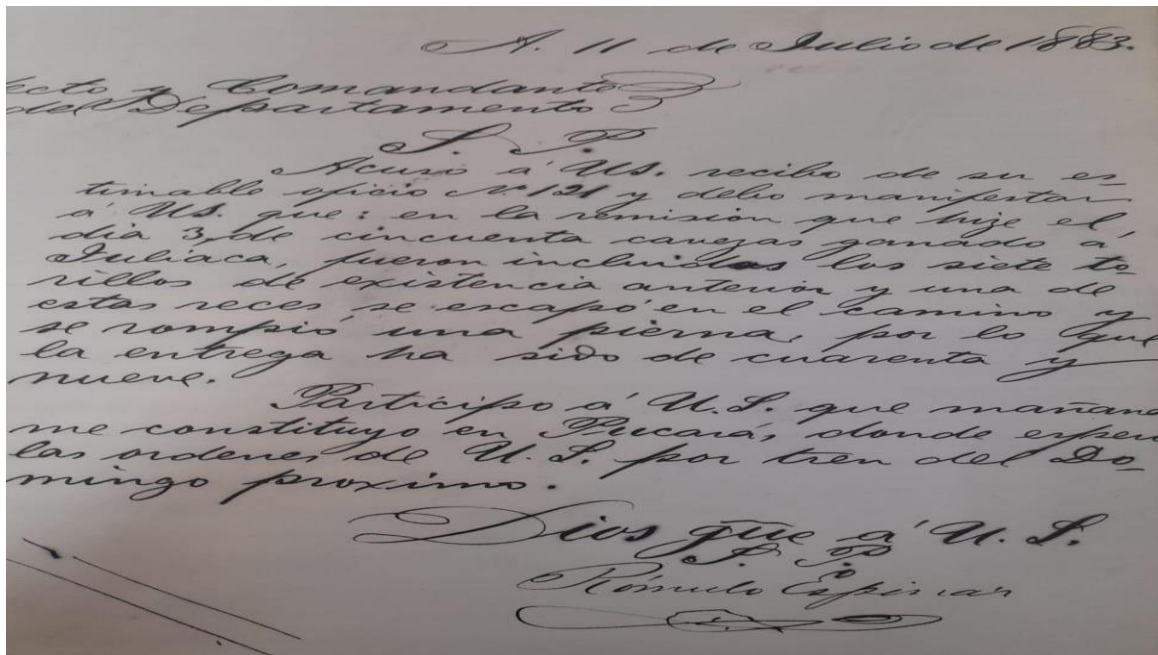 A. 11 de Julio de 1883.
ecto y Comandante
del Departamento
S. P.
Acuso á US. recibo de su es_
timable oficio Nº 121 y debo manifestar
á US. que: en la remision que hize el
dia 3, de cincuenta cavezas ganado á
Juliaca, fueron incluidos los siete to_
rillos de existencia anterior y una de
estas reces se escapó en el camino y
se rompió una pierna, por lo que
la entrega ha sido de cuarenta y
nueve.
Participo á U.S. que mañana
me constituyo en Pucará, donde esper
las ordenes de U.S. por tren del Do_
mingo proximo.
Dios gue á U.S.
S. P.
Rómulo Espinar